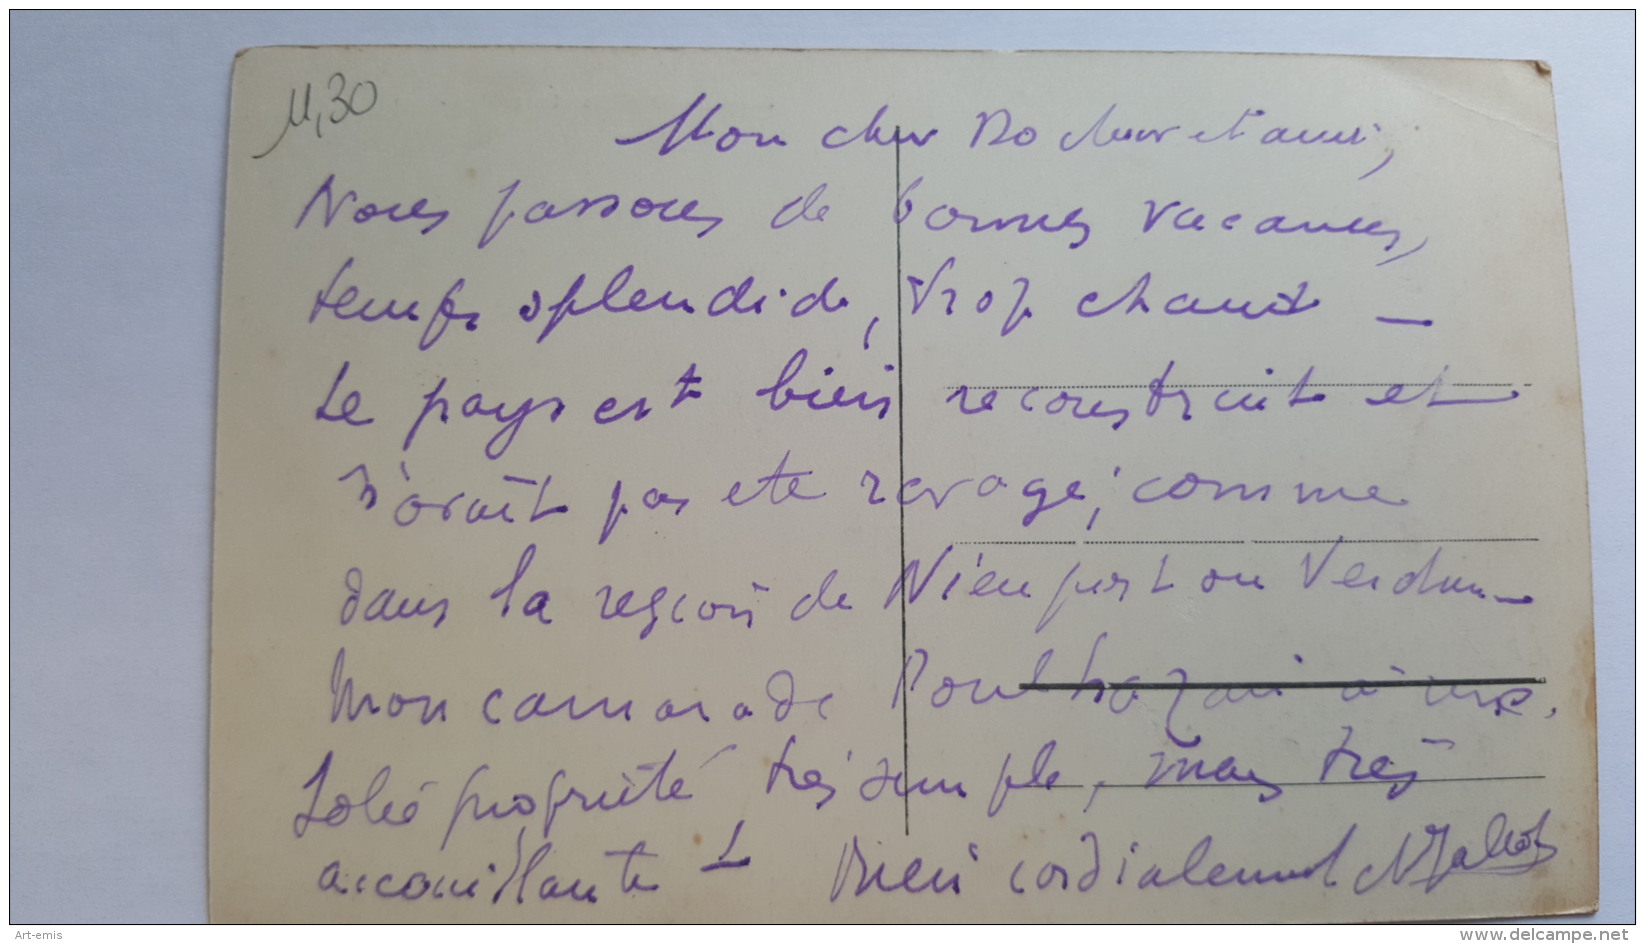 11,30
Mon cher Docteur et ami,
Nous passons de bonnes vacances,
temps splendide, trop chaud —
Le pays est bien reconstruit et
n'avait pas ete ravagé, comme
dans la region de Nieuport ou Verdun —
Mon camarade a une
Jolie propriété très simple, mais très
accueillante — Bien cordialement
Art-emis
www.delcampe.net